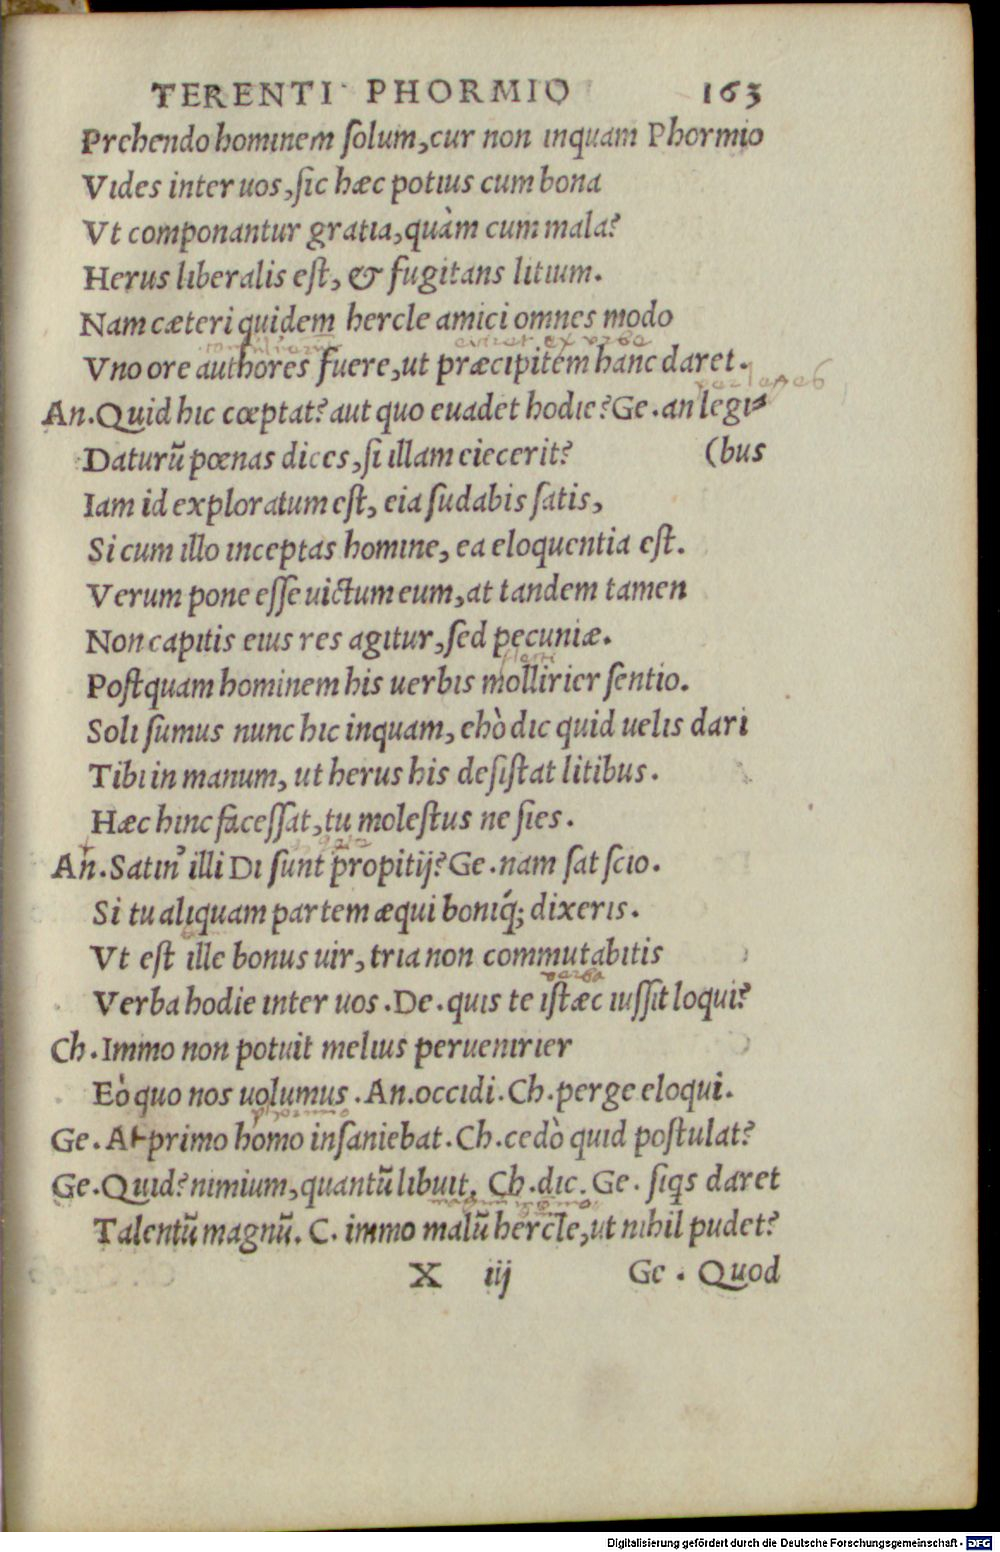 TERENTI PHORMIO 163
Prehendo hominem ſolum, cur non inquam Phormio
Vides inter uos, ſic hæc potius cum bona
Vt componantur gratia, quàm cum mala?
Herus liberalis eſt, & fugitans litium.
Nam cæteri quidem hercle amici omnes modo
eiiceret ex urbe
Vno ore authores fuere, ut præcipitem hanc daret.
per leges
An. Quid hic cœptat? aut quo euadet hodie? Ge. an legi⸗
Daturũ pœnas dices, ſi illam eiecerit? (bus
Iam id exploratum eſt, eia ſudabis ſatis,
Si cum illo inceptas homine, ea eloquentia eſt.
Verum pone eſſe uictum eum, at tandem tamen
Non capitis eius res agitur, ſed pecuniæ.
flecti
Poſtquam hominem his uerbis mollirier ſentio.
Soli ſumus nunc hic inquam, ehò dic quid uelis dari
Tibi in manum, ut herus his deſiſtat litibus.
Hæc hinc faceſſat, tu moleſtus ne ſies.
An. Satin' illi Di ſunt propitij? Ge. nam ſat ſcio.
Si tu aliquam partem æqui boniq́; dixeris.
Vt eſt ille bonus uir, tria non commutabitis
verba
Verba hodie inter uos. De. quis te iſtæc iuſſit loqui?
Ch. Immo non potuit melius peruenirier
Eò quo nos uolumus. An. occidi. Ch. perge eloqui.
phormio
Ge. At primo homo inſaniebat. Ch. cedò quid poſtulat?
Ge. Quid? nimium, quantũ libuit. Ch. dic. Ge. ſiqs daret
Talentũ magnũ. C. immo malũ hercle, ut nihil pudet?
X iij Ge. Quod
Digitalisierung gefördert durch die Deutsche Forschungsgemeinschaft - DFG